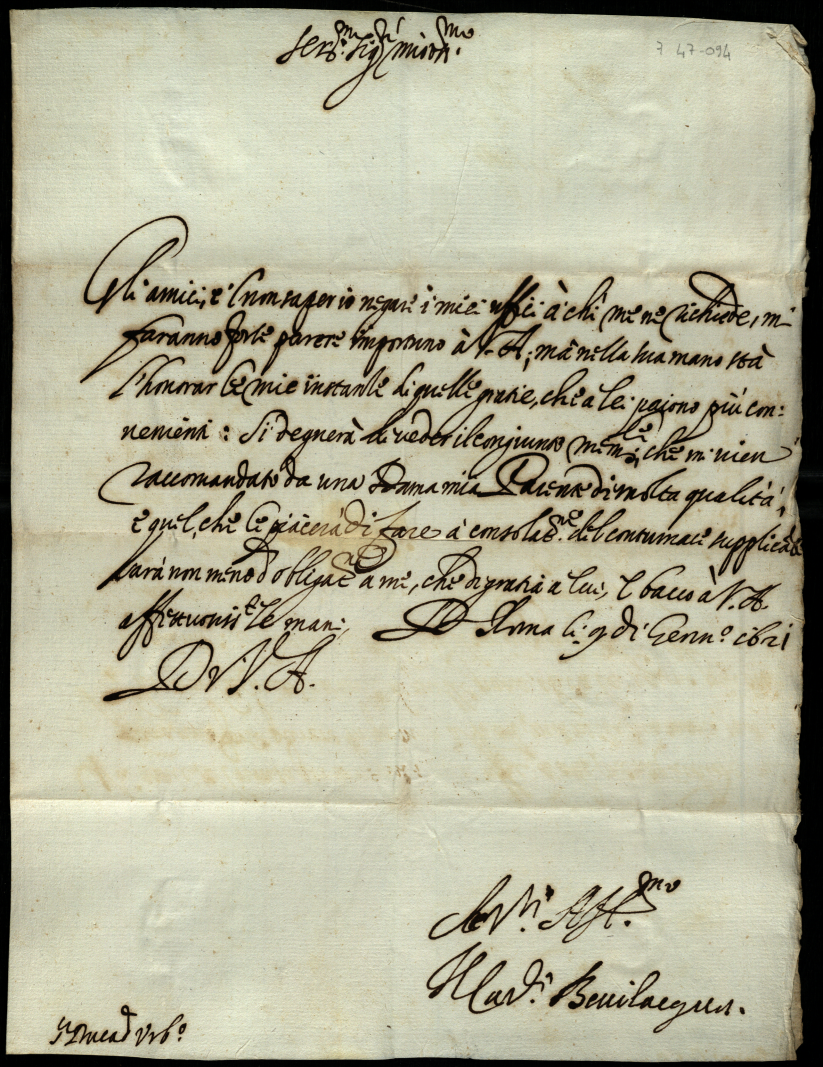 Ser.mo Sig.r mio oss.mo
7 47-094
Gli amici, e'l non saper io negare i miei uffici à chi me ne richiede, mi
faranno forse parere importuno à V. A., mà nella sua mano stà
l'honorar le mie instanze di quelle gratie, che a lei paiono più con:
uenienti: Si degnerà di ueder il congiunto mem.le, che mi uien
raccomandato da una Dama mia Parente di molta qualità,
e quel, che le piacerà di fare à consolat.ne del contumace supplicãte
sarà non meno d'obligat.ne a me, che di gratia a lui, e bacio à V. A.
affettuosis.te le mani, Di Roma li 9 di Genn.o 1621
Di V. A.
Ser.re Aff.mo
Il Card. Beuilacqua.
S.r Duca d'Vrb.o